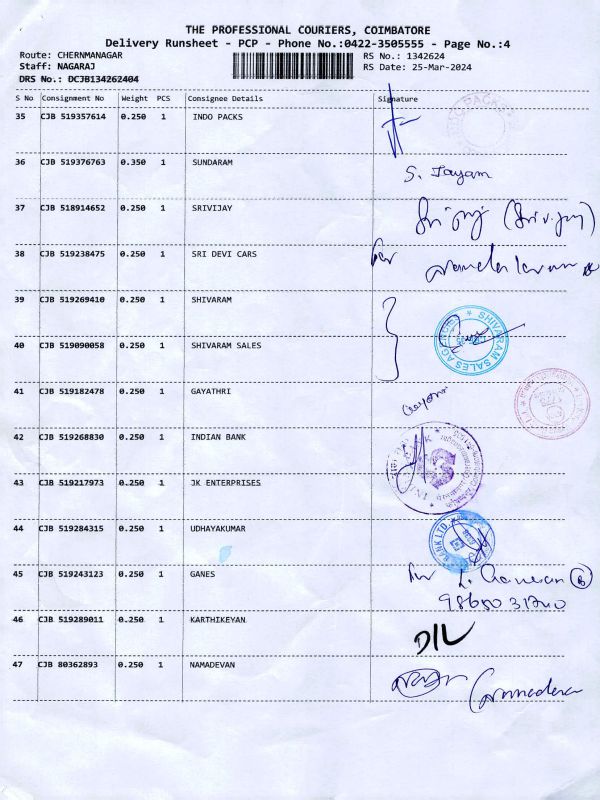 THE PROFESSIONAL COURIERS, COIMBATORE
Delivery Runsheet - PCP - Phone No.:0422-3505555 - Page No.:4
Route: CHERNMANAGAR
RS No.: 1342624
Staff: NAGARAJ
RS Date: 25-Mar-2024
DRS No.: DCJB134262404
S No Consignment No Weight PCS Consignee Details Signature
35 CJB 519357614 0.250 1 INDO PACKS
36 CJB 519376763 0.350 1 SUNDARAM
S. Jayam
37 CJB 518914652 0.250 1 SRIVIJAY
(Srivijay)
38 CJB 519238475 0.250 1 SRI DEVI CARS
for
39 CJB 519269410 0.250 1 SHIVARAM
SHIVARAM SALES AGENCIES
40 CJB 519090058 0.250 1 SHIVARAM SALES
41 CJB 519182478 0.250 1 GAYATHRI
42 CJB 519268830 0.250 1 INDIAN BANK
43 CJB 519217973 0.250 1 JK ENTERPRISES
44 CJB 519284315 0.250 1 UDHAYAKUMAR
BANK LTD
45 CJB 519243123 0.250 1 GANES
for
98650 31740
46 CJB 519289011 0.250 1 KARTHIKEYAN
D/L
47 CJB 80362893 0.250 1 NAMADEVAN